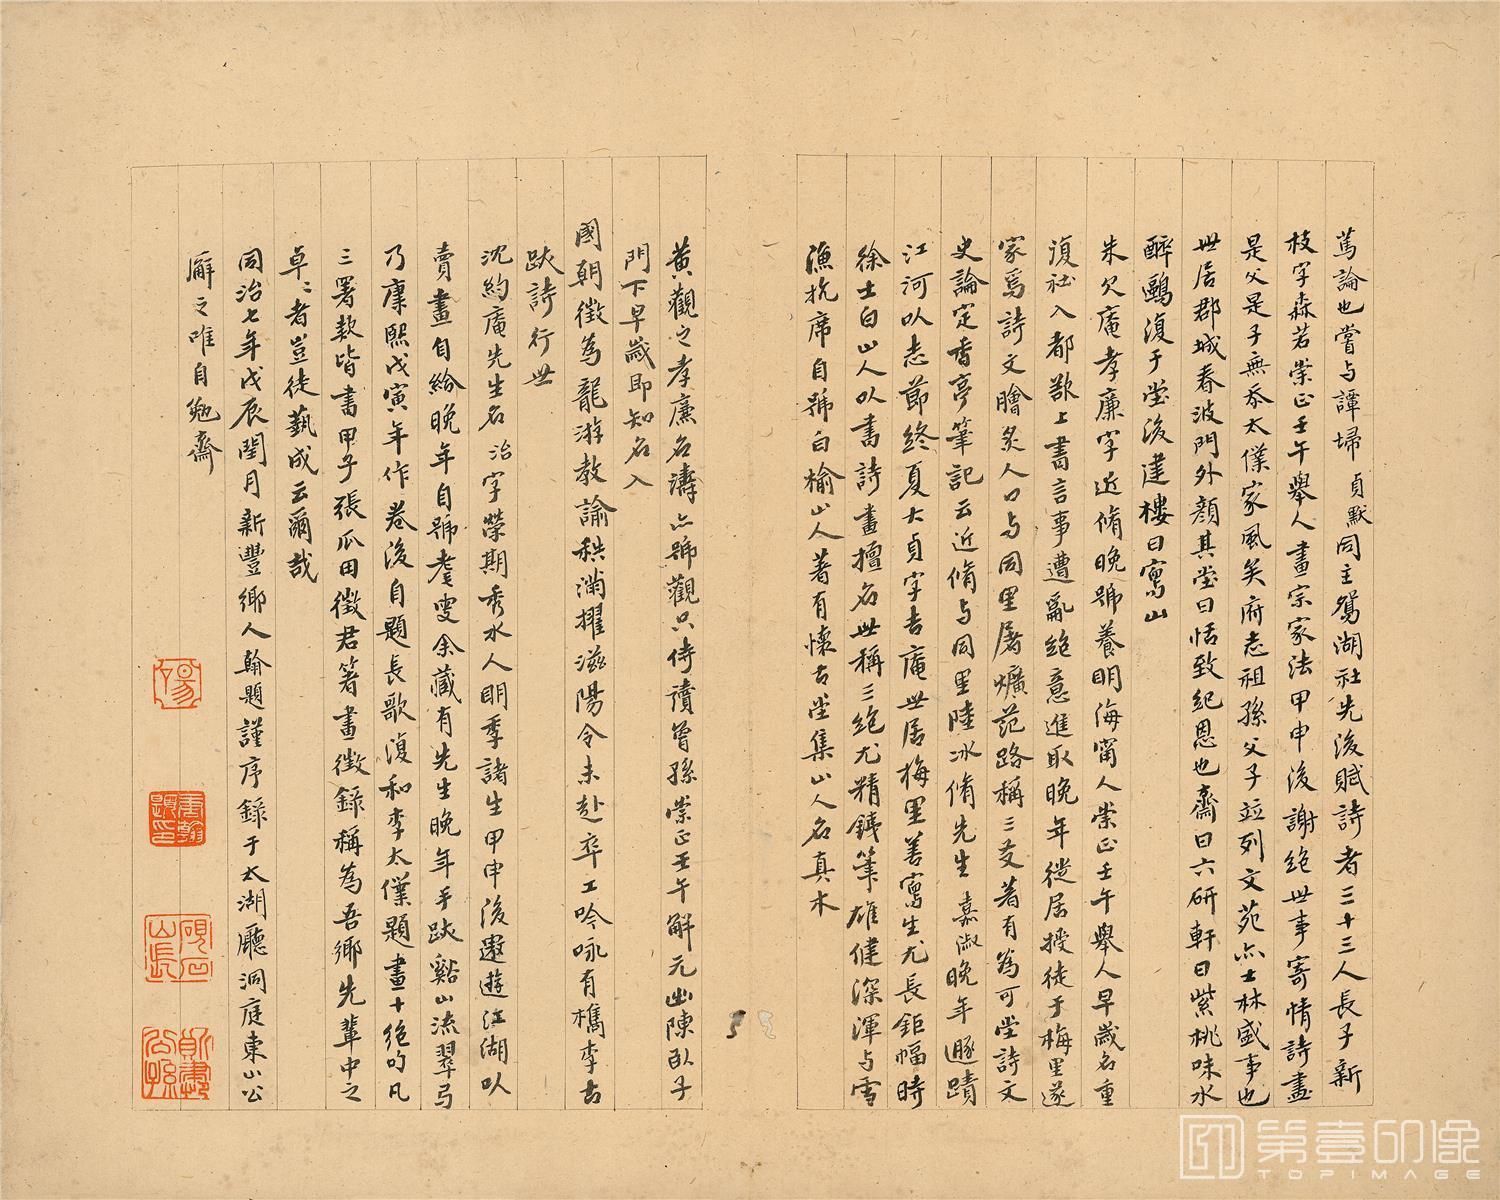 篤論也嘗与譚埽貞默同主鴛湖社先後賦詩者三十三人長子新
枝字森若崇正壬午舉人畫宗家法甲申後謝絕世事寄情詩畫
是父是子無忝太僕家風矣府志祖孫父子竝列文苑亦士林盛事也
世居郡城春波門外顏其堂曰恬致紀恩也齋曰六研軒曰紫桃味水
醉鷗復于堂後建樓曰寫山
朱欠庵孝廉字近脩晚號養明海甯人崇正壬午舉人早歲名重
復社入都歘上書言事遭亂絕意進取晚年徙居授徒于梅里遂
家焉詩文膾炙人口与同里屠爌范路稱三友著有為可堂詩文
史論定香亭筆記云近脩与同里陸冰脩先生嘉淑晚年遯蹟
江河以志節終夏大貞字吉庵世居梅里善寫生尤長鉅幅時
徐士白山人以書詩畫擅名世稱三絕尤精鐵筆雄健深渾与雪
漁抗席自號白榆山人著有懷古堂集山人名真木
黃觀之孝廉名濤亦號觀只侍讀曾孫崇正壬午解元出陳臥子
門下早歲即知名入
國朝徵為龍游教諭秩滿擢滋陽令未赴卒工吟咏有檇李古
跡詩行世
沈約庵先生名治字榮期秀水人明季諸生甲申後遨遊江湖以
賣畫自給晚年自號耄叟余藏有先生晚年手跡谿山流翠弓
乃康熙戊寅年作卷後自題長歌復和李太僕題畫十絕句凡
三署款皆書甲子張瓜田徵君箸畫徵錄稱為吾鄉先輩中之
卓〻者豈徒藝成云爾哉
同治七年戊辰閏月新豐鄉人翰題謹序錄于太湖廳洞庭東山公
廨之唯自勉齋
唐翰題印
硯石山長
新豐鄉人
第壹印像
TOPIMAGE